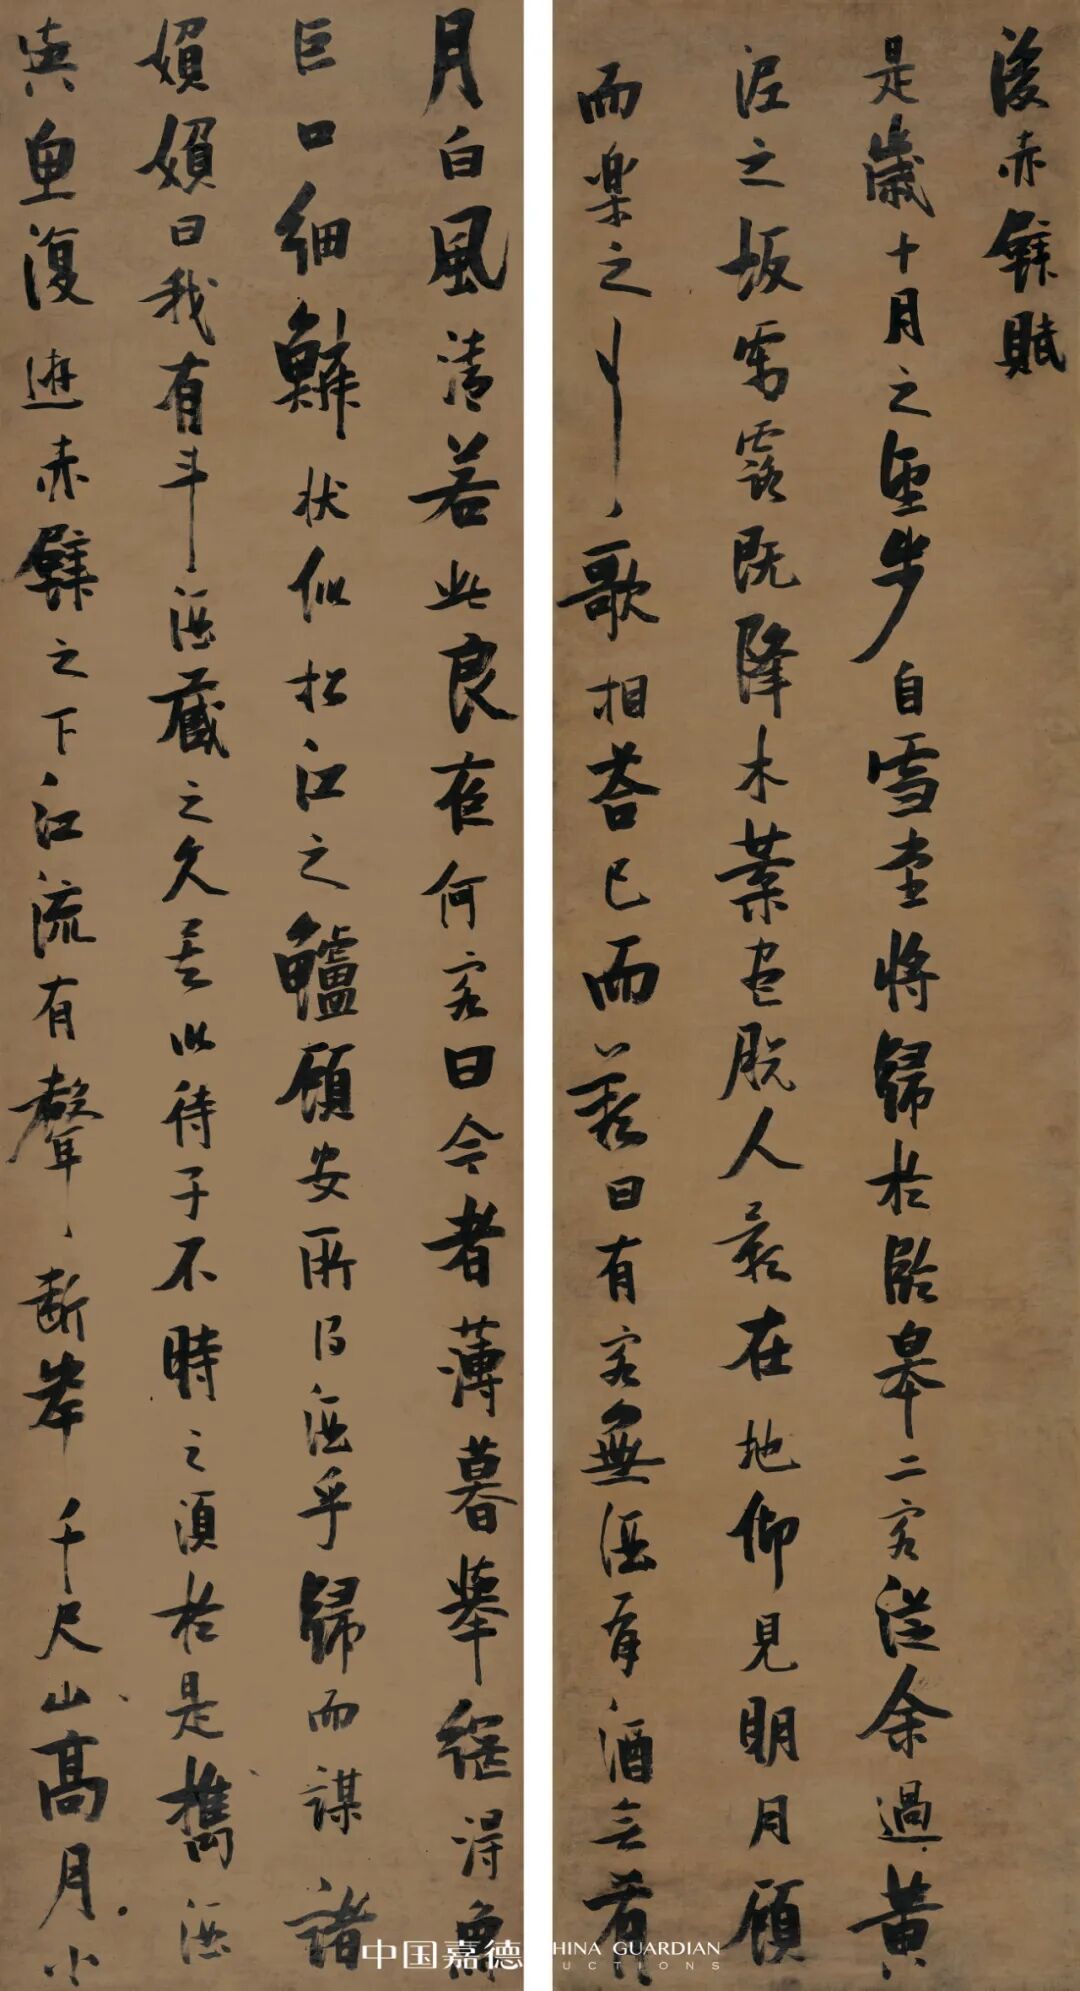 後赤壁賦
是歲十月之望步自雪堂將歸於臨皋二客從余過黃
泥之坂霜露既降木葉盡脫人影在地仰見明月顧
而樂之行歌相荅已而歎曰有客無酒有酒無肴
月白風清若此良夜何客曰今者薄暮舉網得魚
巨口細鱗狀似松江之鱸顧安所得酒乎歸而謀諸
婦婦曰我有斗酒藏之久矣以待子不時之須於是攜酒
與魚復遊赤壁之下江流有聲斷岸千尺山高月小
中国嘉德 CHINA GUARDIAN
AUCTIONS